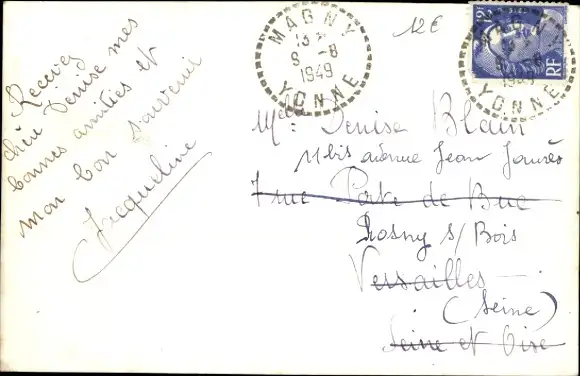 Recevez
chère Denise mes
bonnes amitiés et
mon bon souvenir
Jacqueline
MAGNY
13 -
9 - 8
1949
YONNE
12€
MAGNY
1949
YONNE
RF
Melle Denise Blain
11bis avenue Jean Jaurès
7 rue Porte de Buc
Rosny s/ Bois
Versailles
(Seine)
Seine et Oise